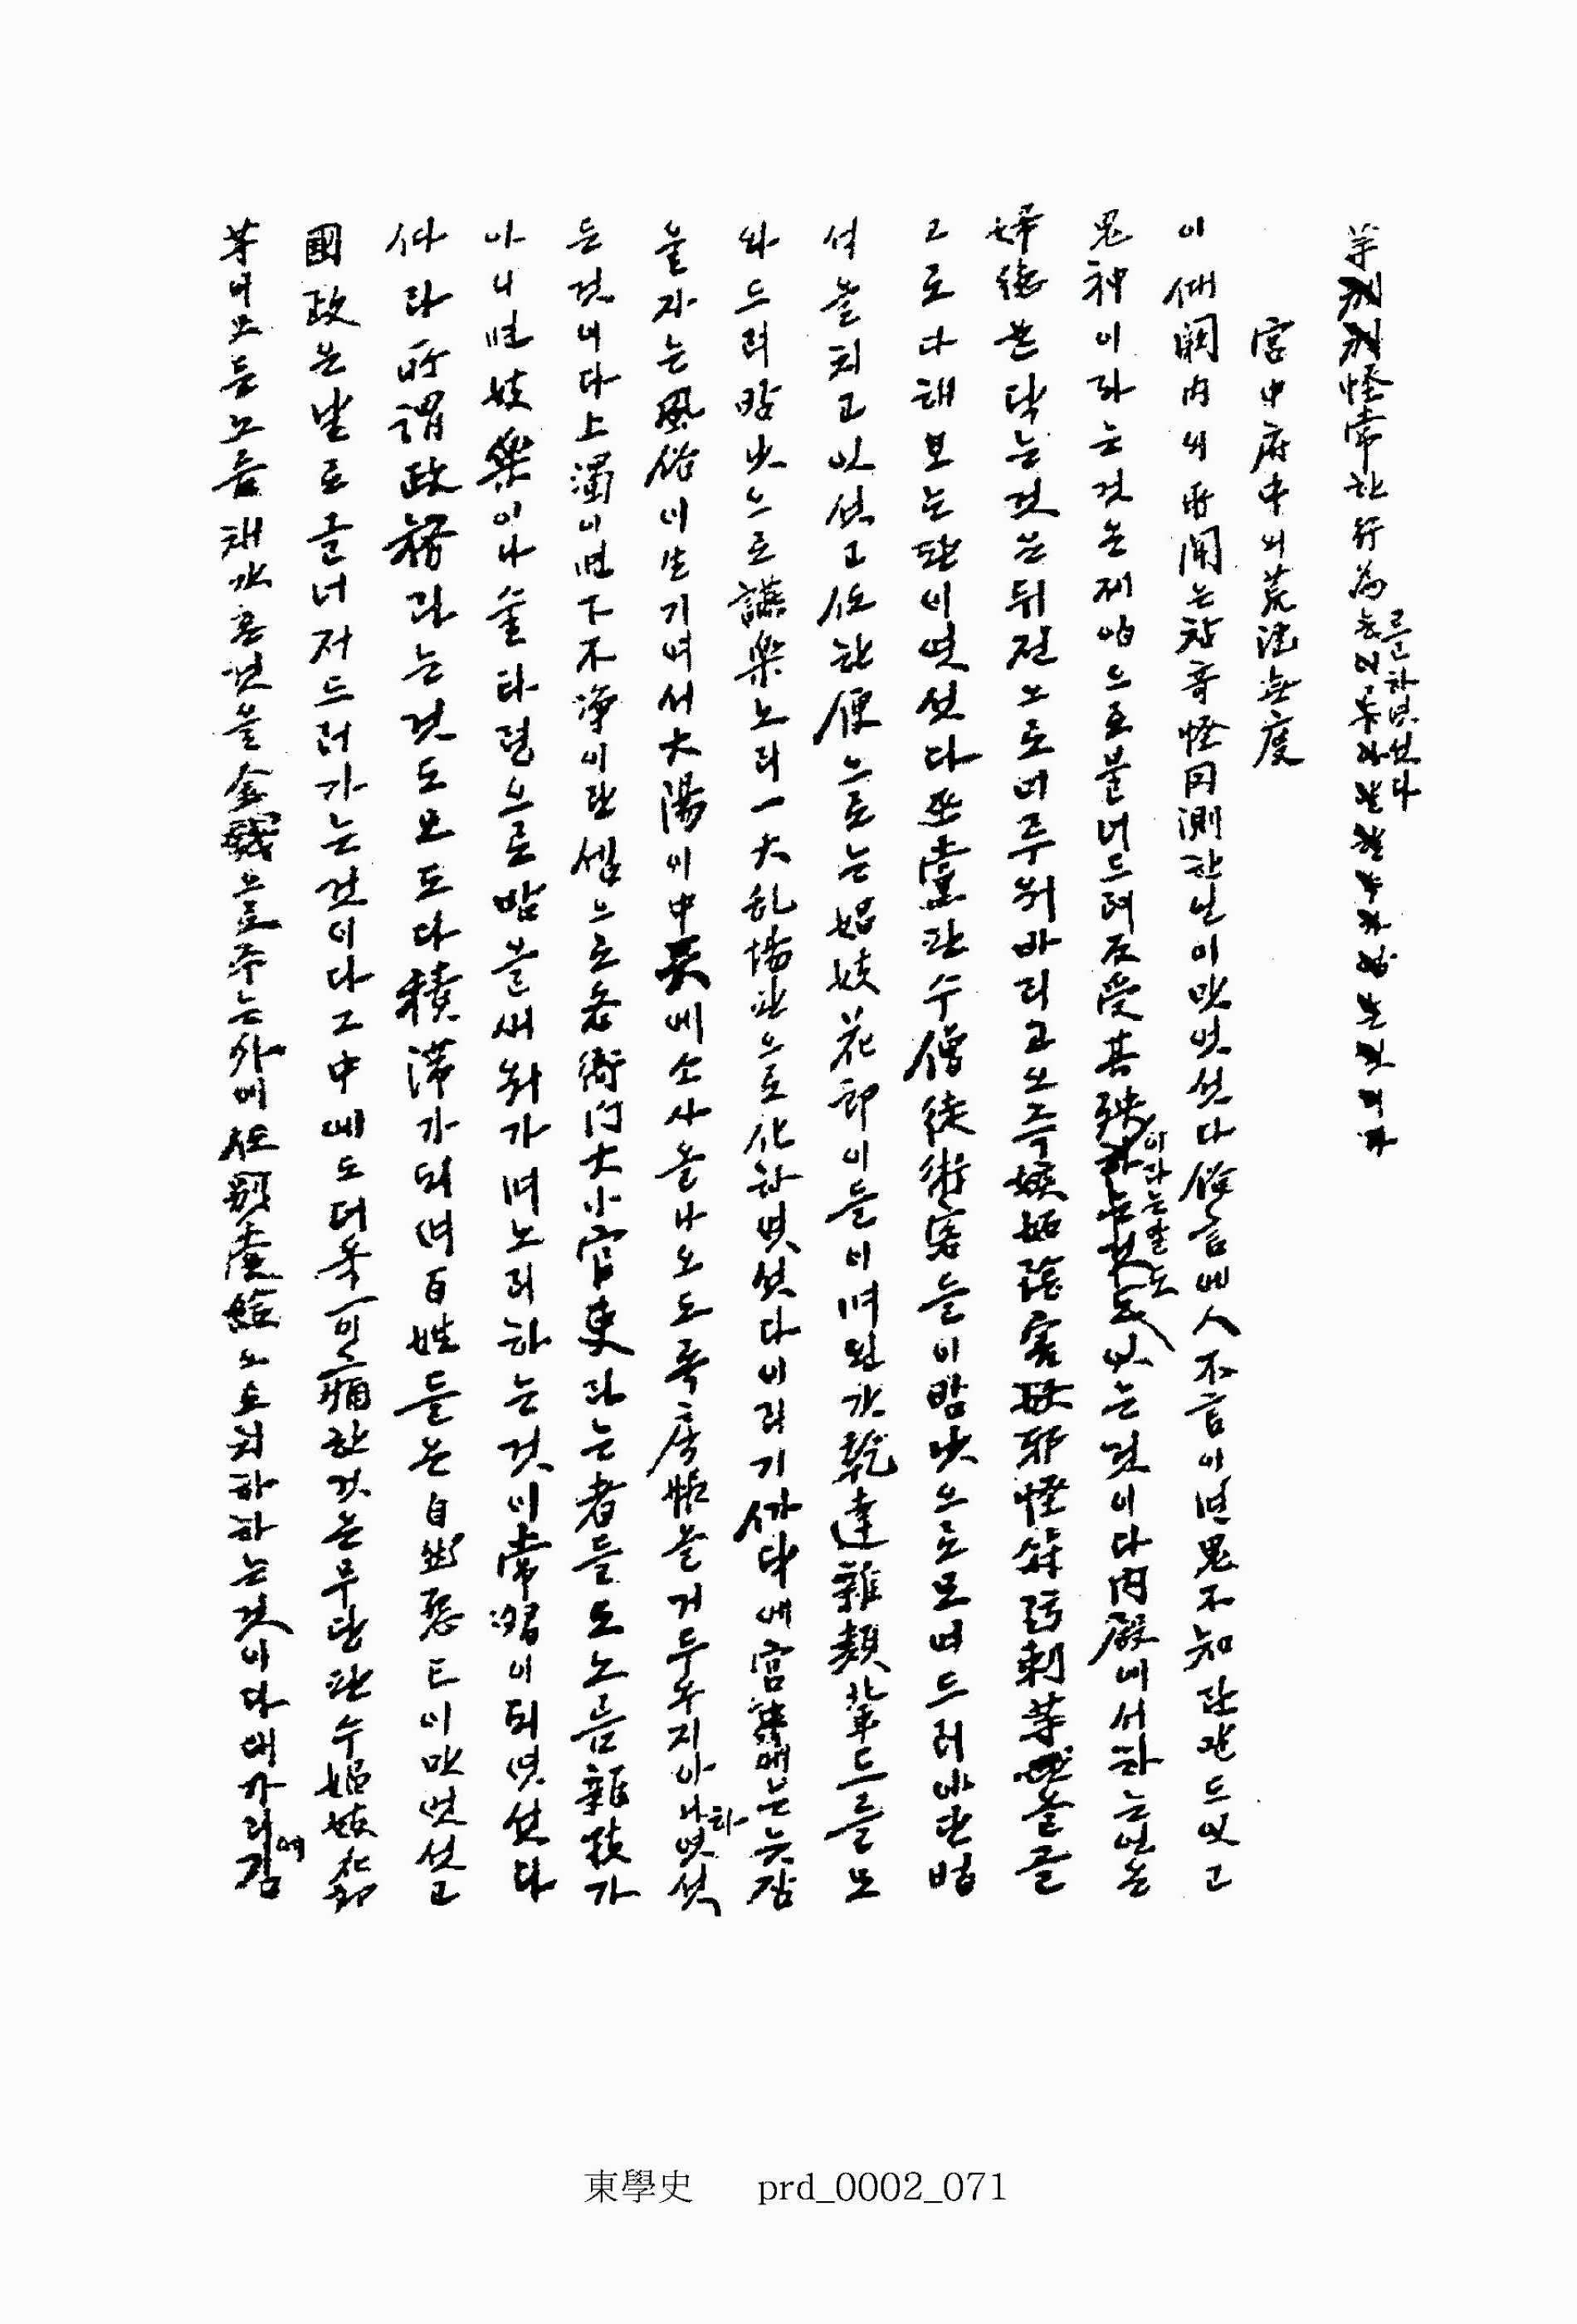 等 怪常한 行為를 하엿섯다
宮中府中의 荒淫無度
이 때 闕內의 所聞는 참 奇怪罔測한 일이 만엇섯다 俗言에 人不言이면 鬼不知란 말도 잇고
鬼神이라는 것은 제 얌으로 불너드려 反受其殃이라는 말도 잇는 것이다 內殿에서 하는 일은
婦德은 닥는 것은 뒤전으로 미루워바리고 오즉 嫉妬 陰害 妖邪怪 等 글
그로다 해보는 판이엿섯다 巫堂 판수 僧徒 術客들이 밤낫으로 모여드러 야단법
석을 치고 잇섯고 또 한 便으로는 娼妓 花郞이들이며 왼갓 乾達 雜類輩드를 모
와드려 밤낫으로 讌樂노리 一大乱場판으로 化하엿섯다 이리기 따닥에 宮 에는 늣잠
을 자는 風俗이 生기여서 太陽이 中天에 소사을나오도록 房帳을 거두우지 아니하엿섯
든 것이다 上濁이면 下不淨이란 셈으로 各衙門 大小官吏라는 者들도 노름 雜技가
아니면 妓樂이나 술타령으로 밤을 새워가며 노리하는 것이 常習이 되엿섯다
따라 所謂 政務라는 것도 모도다 積滯가 되며 百姓들은 自 怨亡이 만엇섯고
國政은 날로 글너저 드러가는 것이다 그 中에도 더욱 可痛한 것은 무당 판수 娼妓 花郞
等의 모든 노름채 갓흔 것을 金錢으로 주는 外에 또 別 로 치하하는 것이다 대가리에 감
東學史 prd_0002_071